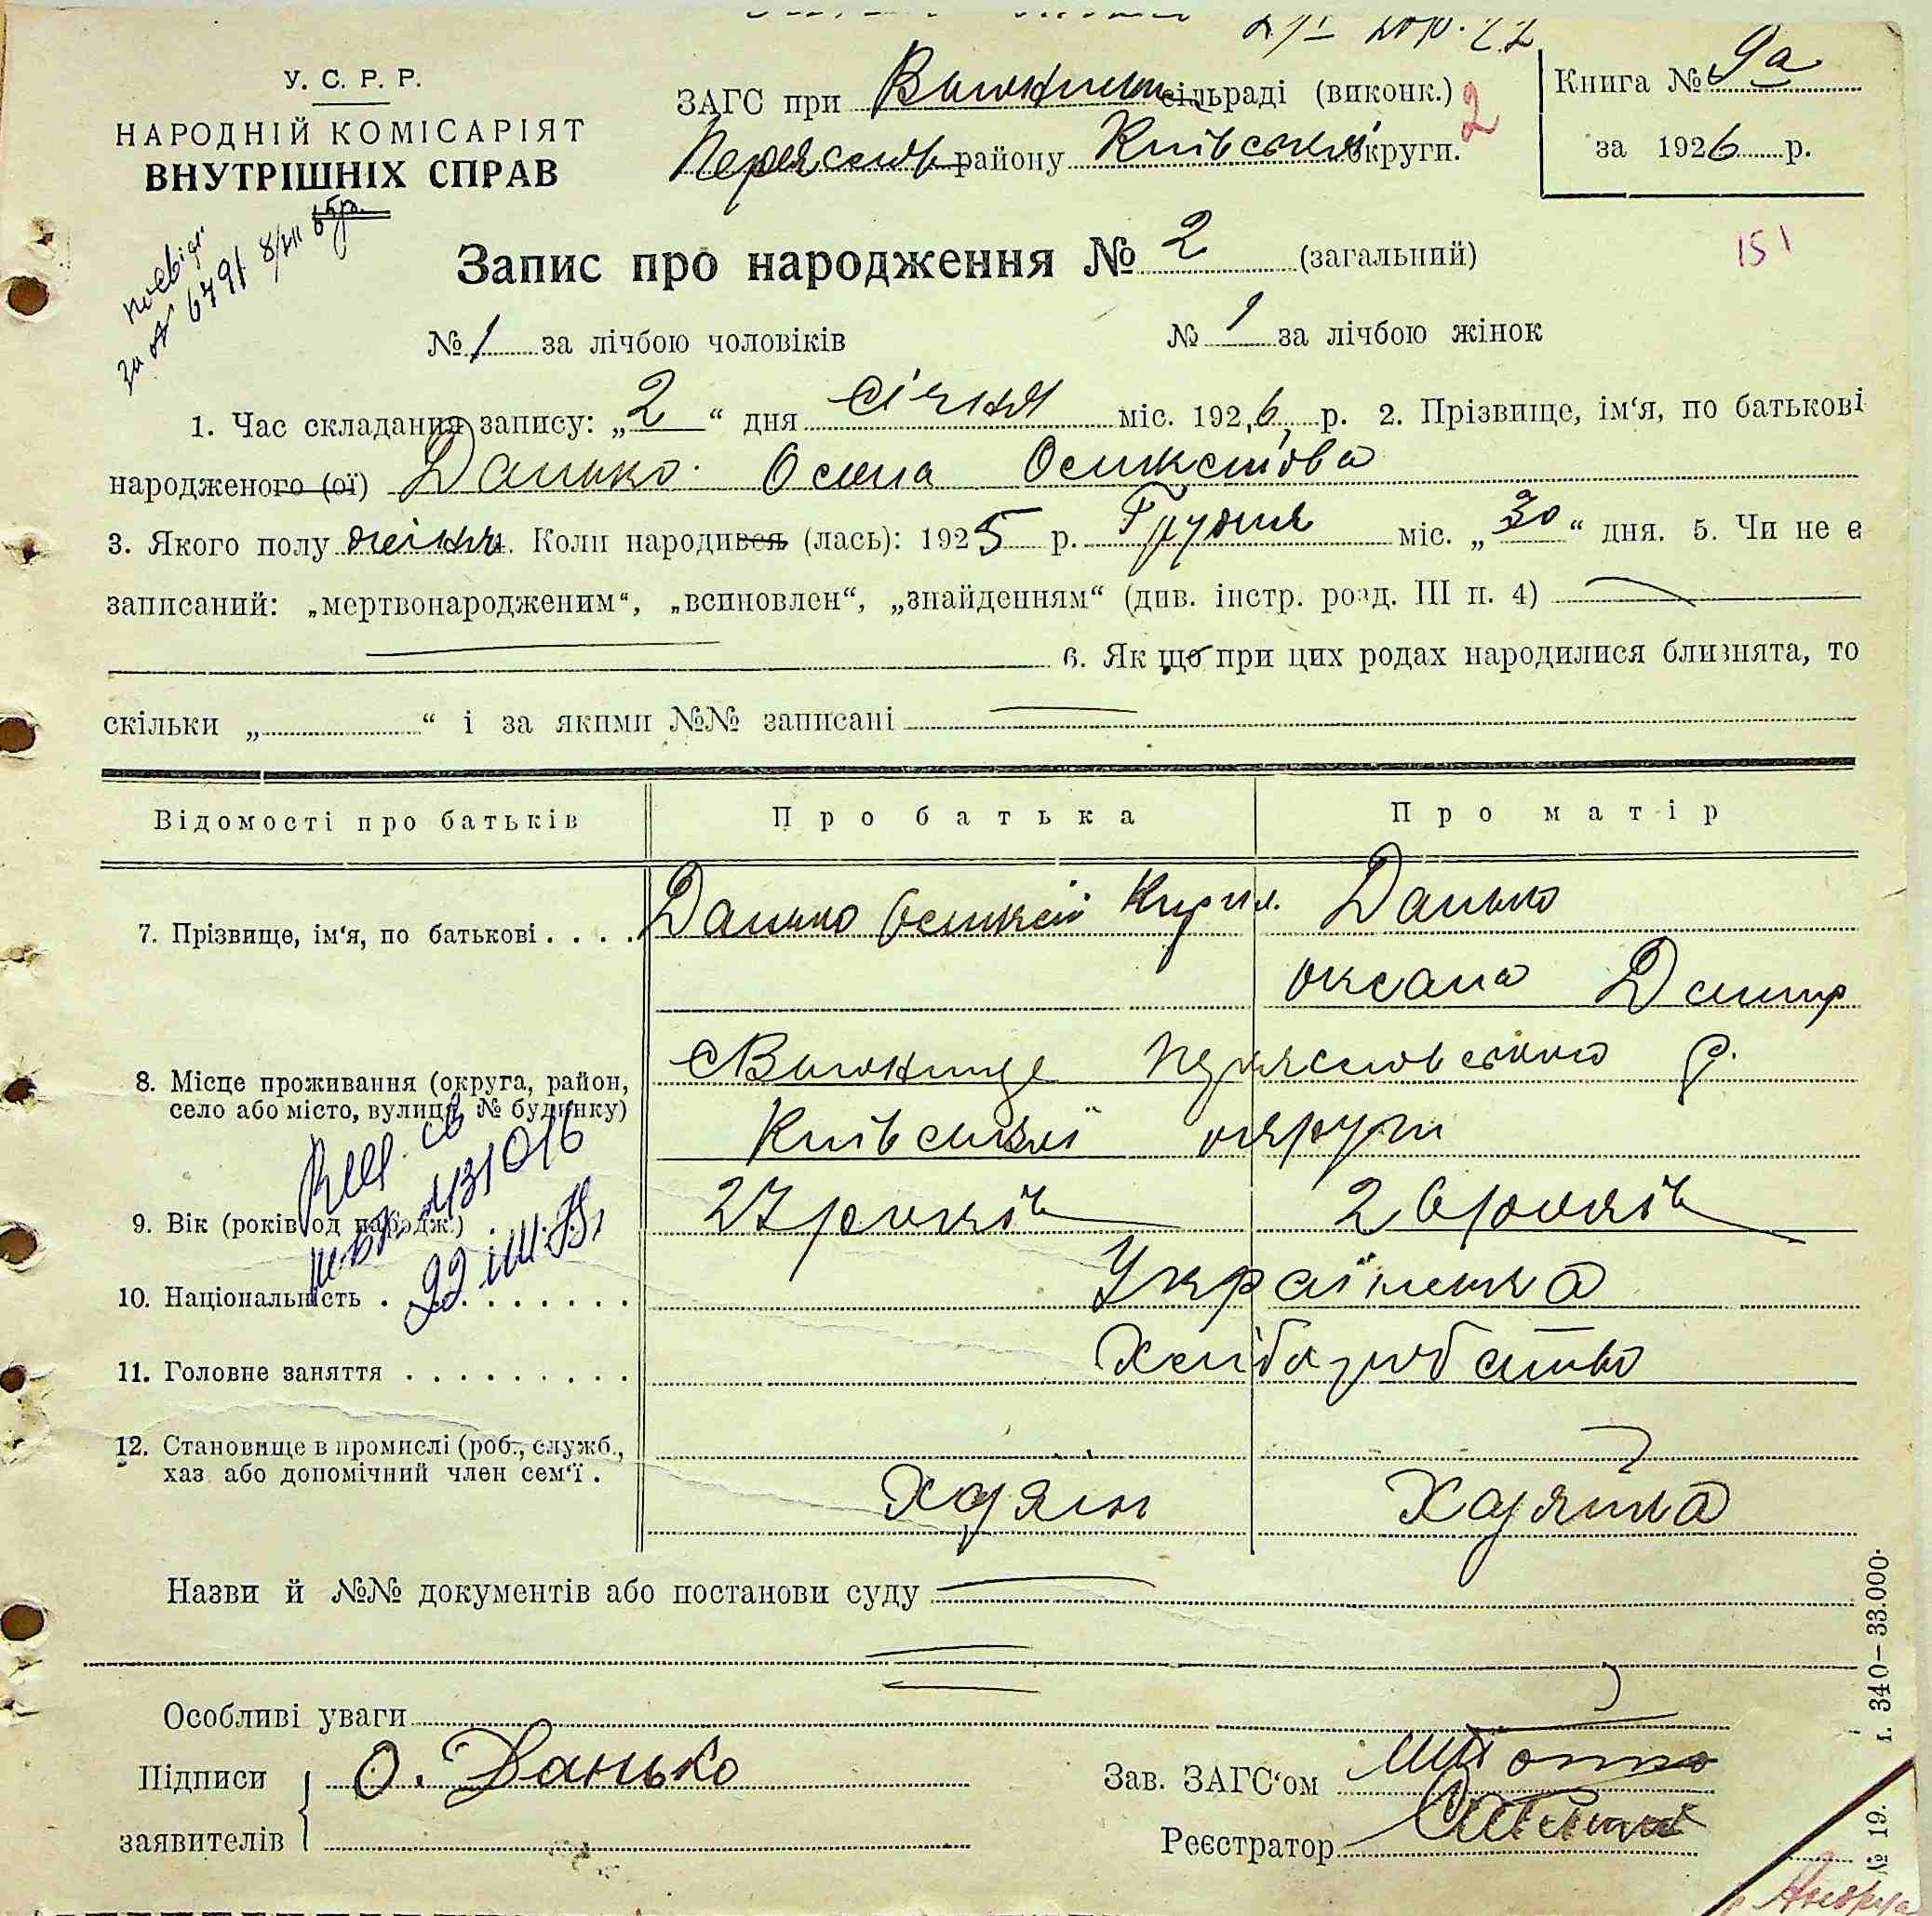 У. С. Р. Р.
НАРОДНІЙ КОМІСАРІЯТ
ВНУТРІШНІХ СПРАВ
ЗАГС при сільраді (виконк.)
Переяслов району Київської округи.
2
Книга № 9а
за 1926 р.
151
6791 8/VII
Запис про народження № 2 (загальний)
№ 1 за лічбою чоловіків № 1 за лічбою жінок
1. Час складання запису: „2“ дня січня міс. 1926 р. 2. Прізвище, ім‘я, по батькові
народженого (ої) Данько Олена Олексієва
3. Якого полу жіноч. Коли народився (лась): 1925 р. Грудня міс. „30“ дня. 5. Чи не є
записаний: „мертвонародженим“, „всиновлен“, „знайденням“ (див. інстр. розд. III п. 4)
6. Як що при цих родах народилися близнята, то
скільки „ “ і за якими №№ записані
Відомості про батьків Про батька Про матір
7. Прізвище, ім‘я, по батькові . . . . Данько Олексій Кирил. Данько
Оксана Дмитр
8. Місце проживання (округа, район,
село або місто, вулиця, № будинку)
Переясловського р.
Київської округи
9. Вік (років од народж.) 27 років 26 років
10. Національність . . . . . . . . . Українська
11. Головне заняття . . . . . . . . . Хліборобство
12. Становище в промислі (роб., служб.,
хаз або допомічний член сем‘ї .
Хазяїн Хазяйка
Назви й №№ документів або постанови суду
Особливі уваги
Підписи
заявителів
О. Данько
Зав. ЗАГС‘ом
Реєстратор
і. 340—33.000.
№ 19.